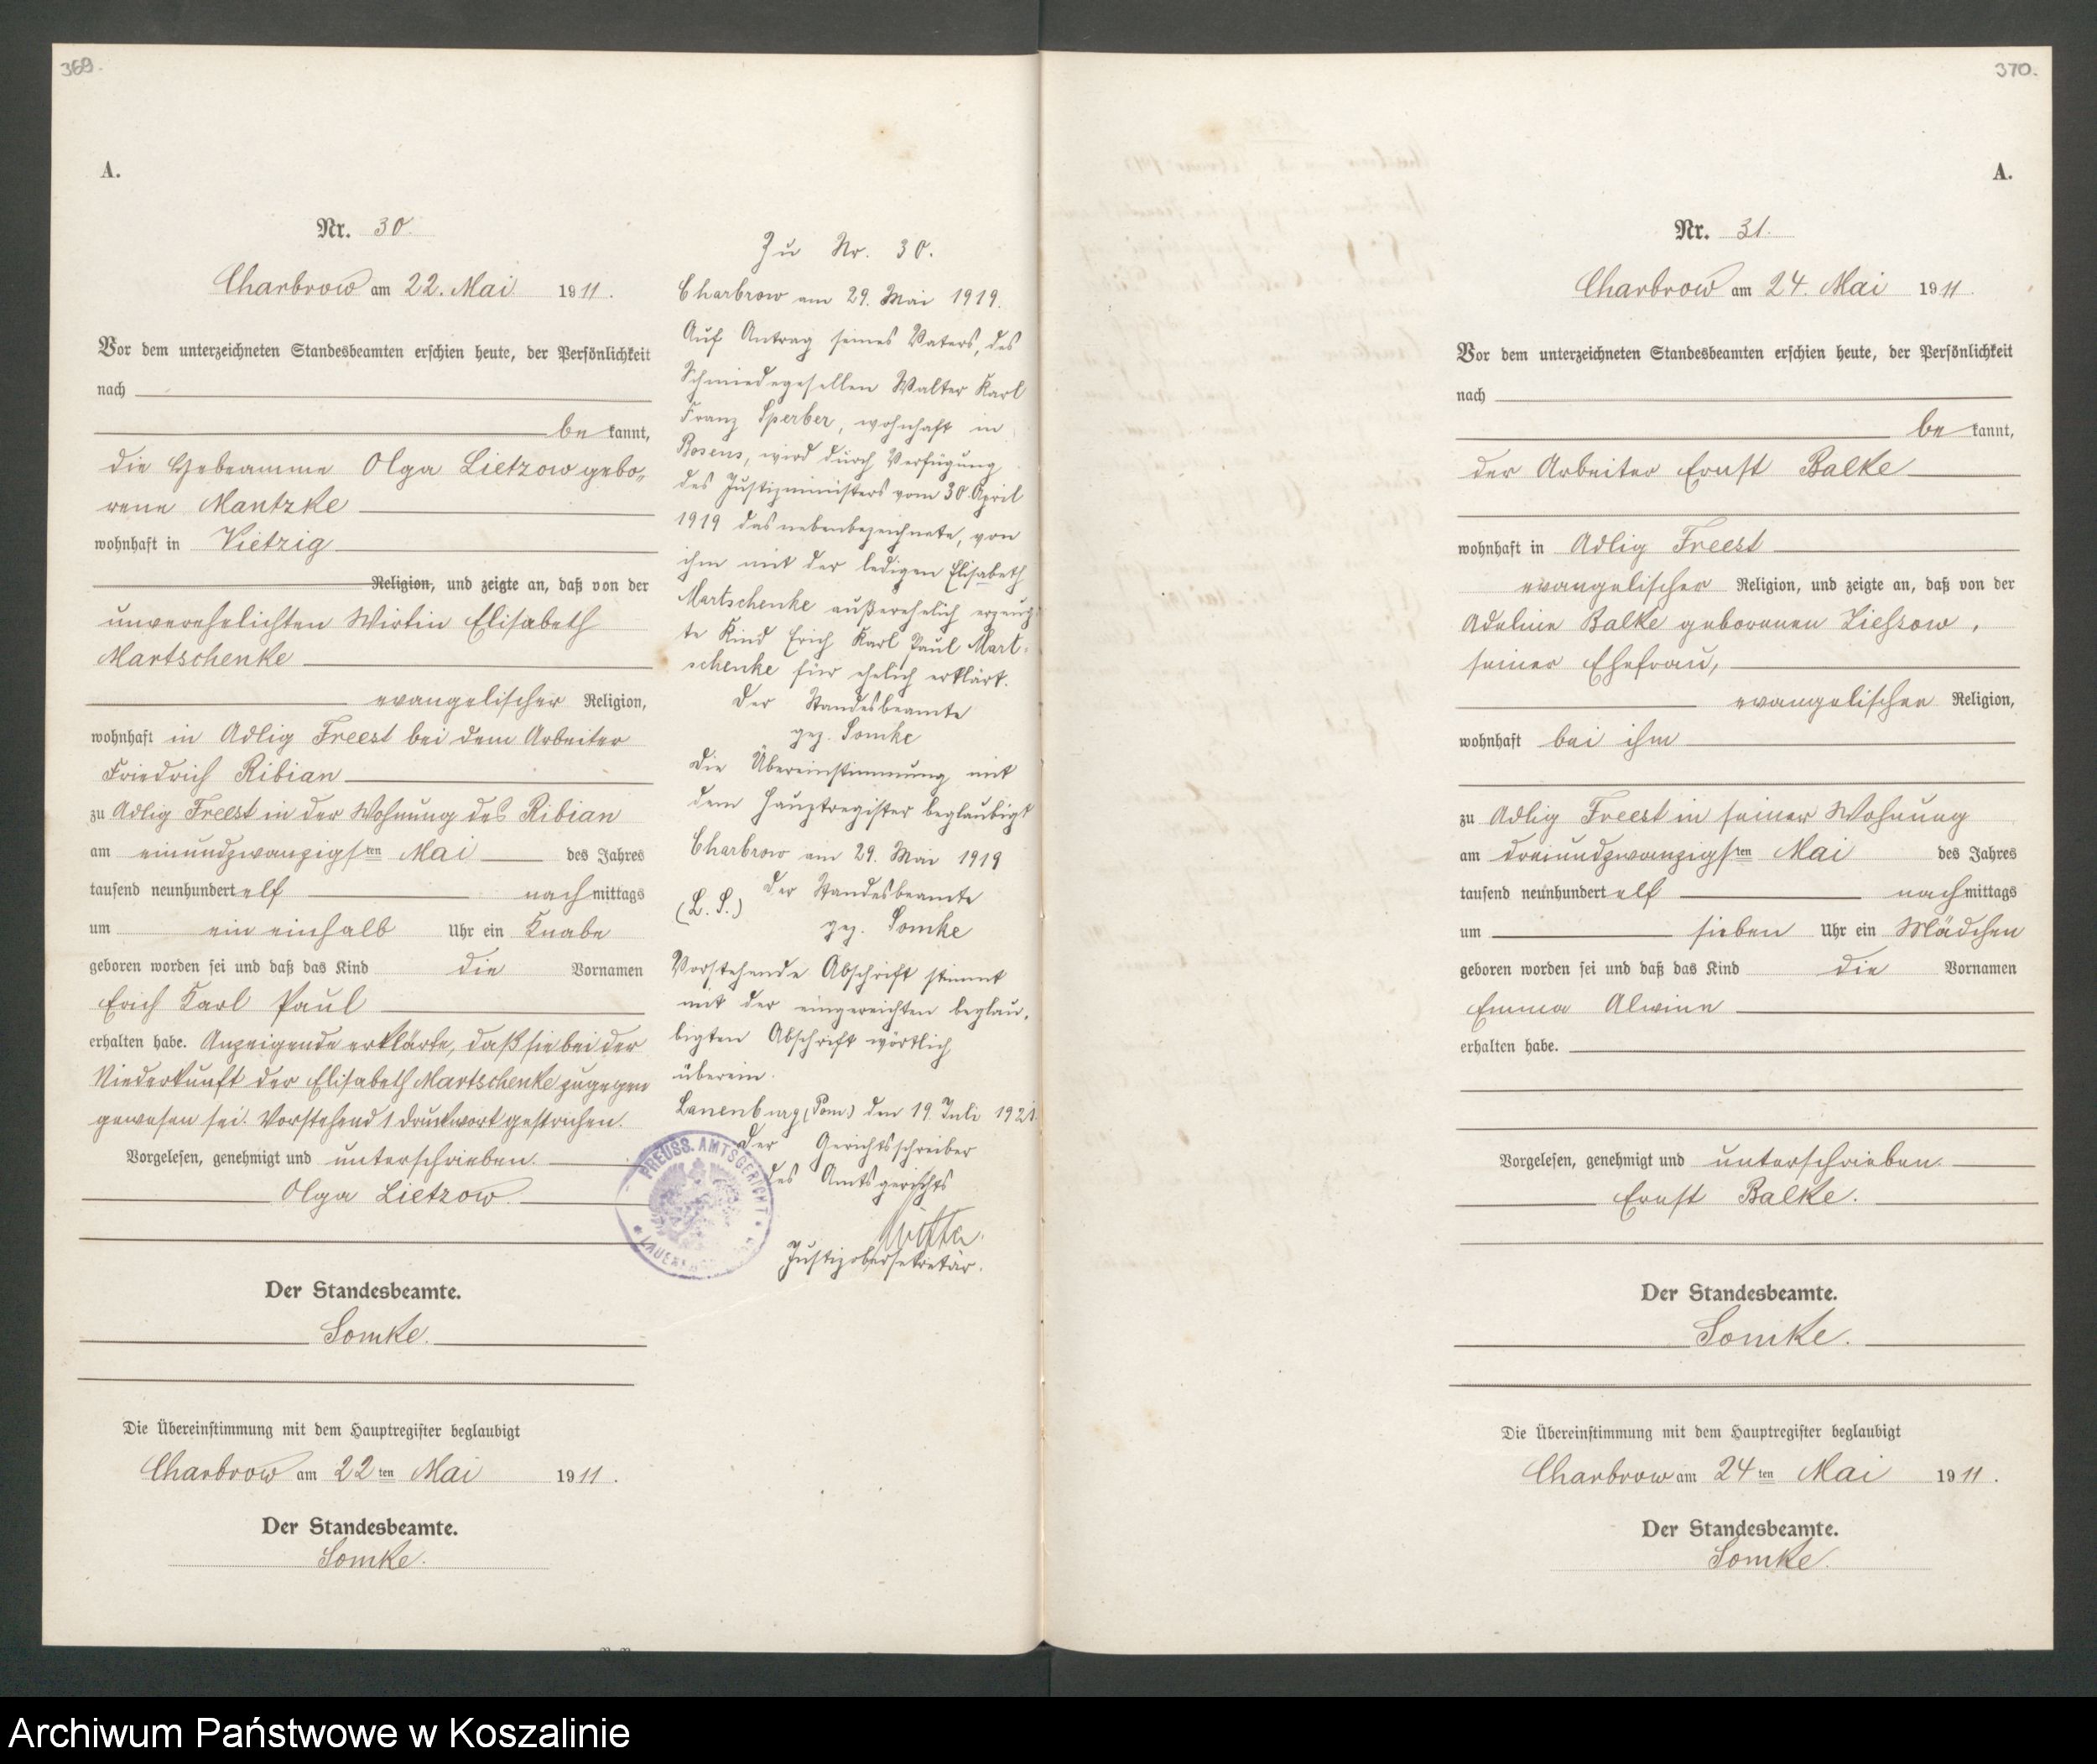 369.
A.
Nr. 30.
Charbrow am 22. Mai 1911.
Vor dem unterzeichneten Standesbeamten erschien heute, der Persönlichkeit
nach
be kannt,
die Hebeamme Olga Lietzow gebo„
rene Mantzke
wohnhaft in Vietzig
Religion, und zeigte an, daß von der
unverehelichten Wirtin Elisabeth
Martschenke
evangelischer Religion,
wohnhaft in Adlig Freest bei dem Arbeiter
Friedrich Ribian
zu Adlig Freest in der Wohnung des Ribian
am einundzwanzigsten Mai des Jahres
tausend neunhundert elf nachmittags
um ein einhalb Uhr ein Knabe
geboren worden sei und daß das Kind die Vornamen
Erich Karl Paul
erhalten habe. Anzeigende erklärte, daß sie bei der
Niederkunft der Elisabeth Martschenke zugegen
gewesen sei. Vorstehend 1 Druckwort gestrichen.
Vorgelesen, genehmigt und unterschrieben.
Olga Lietzow.
Der Standesbeamte.
Somke.
Die Übereinstimmung mit dem Hauptregister beglaubigt
Charbrow am 22ten Mai 1911.
Der Standesbeamte.
Somke.
Zu Nr. 30.
Charbrow am 29. Mai 1919.
Auf Antrag seines Vaters, des
Schmiedegesellen Walter Karl
Franz Sperber, wohnhaft in
wird durch Verfügung
des Justizministers vom 30. April
1919 das nebenbezeichnete, von
ihm mit der ledigen Elisabeth
Martschenke außerehelich erzeug-
te Kind Erich Karl Paul Mart-
schenke für ehelich erklärt.
Der Standesbeamte
gez. Somke
Die Übereinstimmung mit
dem Hauptregister beglaubigt
Charbrow am 29. Mai 1919
Der Standesbeamte
(L. S.)
gez. Somke
Vorstehende Abschrift stimmt
mit der eingereichten beglau-
bigten Abschrift wörtlich
überein.
Lauenburg (Pom.) den 19. Juli 1921.
Der Gerichtsschreiber
des Amtsgerichts
Justizobersekretär.
PREUSS. AMTSGERICHT
370.
A.
Nr. 31.
Charbrow am 24. Mai 1911.
Vor dem unterzeichneten Standesbeamten erschien heute, der Persönlichkeit
nach
be kannt,
der Arbeiter Ernst Balke
wohnhaft in Adlig Freest
evangelischer Religion, und zeigte an, daß von der
Adeline Balke geborenen Liessow,
seiner Ehefrau,
evangelischer Religion,
wohnhaft bei ihm
zu Adlig Freest in seiner Wohnung
am dreiundzwanzigsten Mai des Jahres
tausend neunhundert elf nachmittags
um sieben Uhr ein Mädchen
geboren worden sei und daß das Kind die Vornamen
Emma Alwine
erhalten habe.
Vorgelesen, genehmigt und unterschrieben.
Ernst Balke.
Der Standesbeamte.
Somke.
Die Übereinstimmung mit dem Hauptregister beglaubigt
Charbrow am 24ten Mai 1911.
Der Standesbeamte.
Somke.
Archiwum Państwowe w Koszalinie